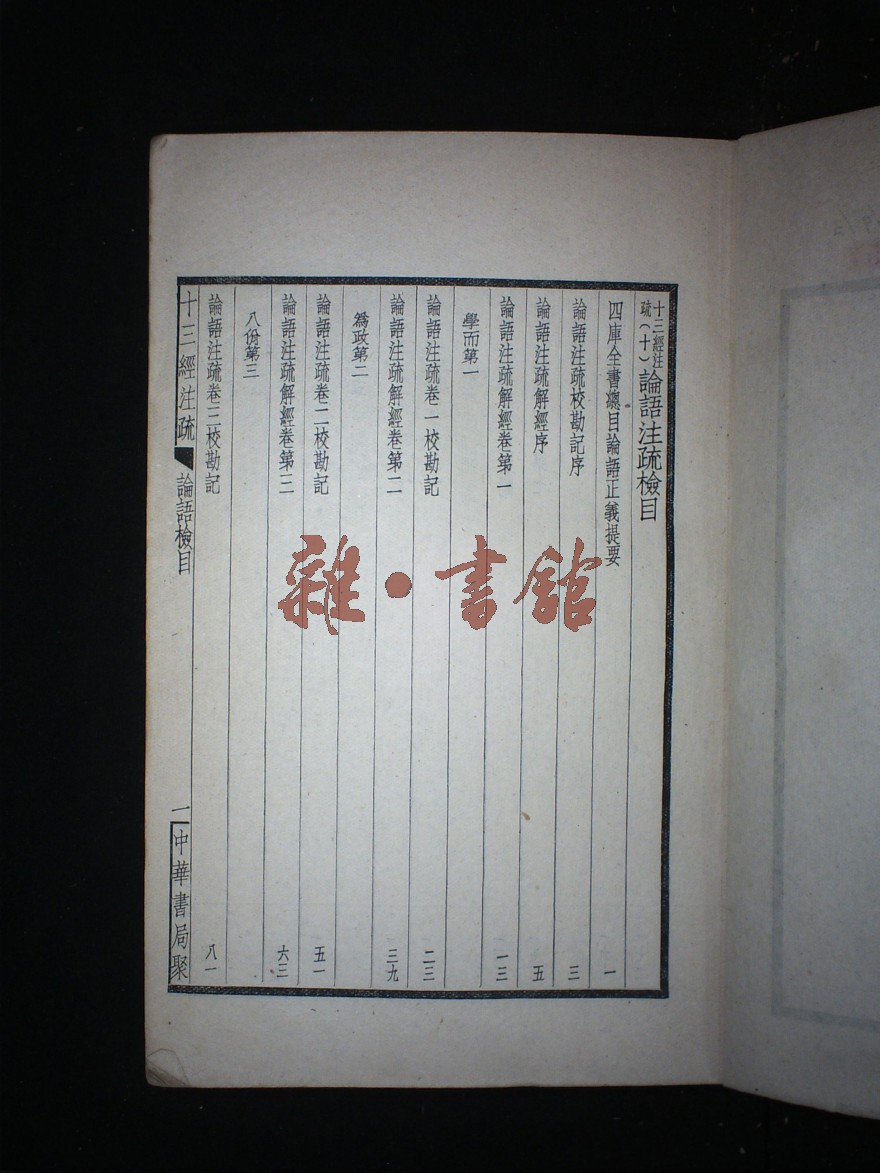 十三經注疏（十）論語注疏檢目
四庫全書總目論語正義提要 一
論語注疏校勘記序 三
論語注疏解經序 五
論語注疏解經卷第一 一三
學而第一
論語注疏卷一校勘記 二三
論語注疏解經卷第二 三九
爲政第二
論語注疏卷二校勘記 五一
論語注疏解經卷第三 六三
八佾第三
論語注疏卷三校勘記 八一
十三經注疏 論語檢目 一 中華書局聚
雜·書館